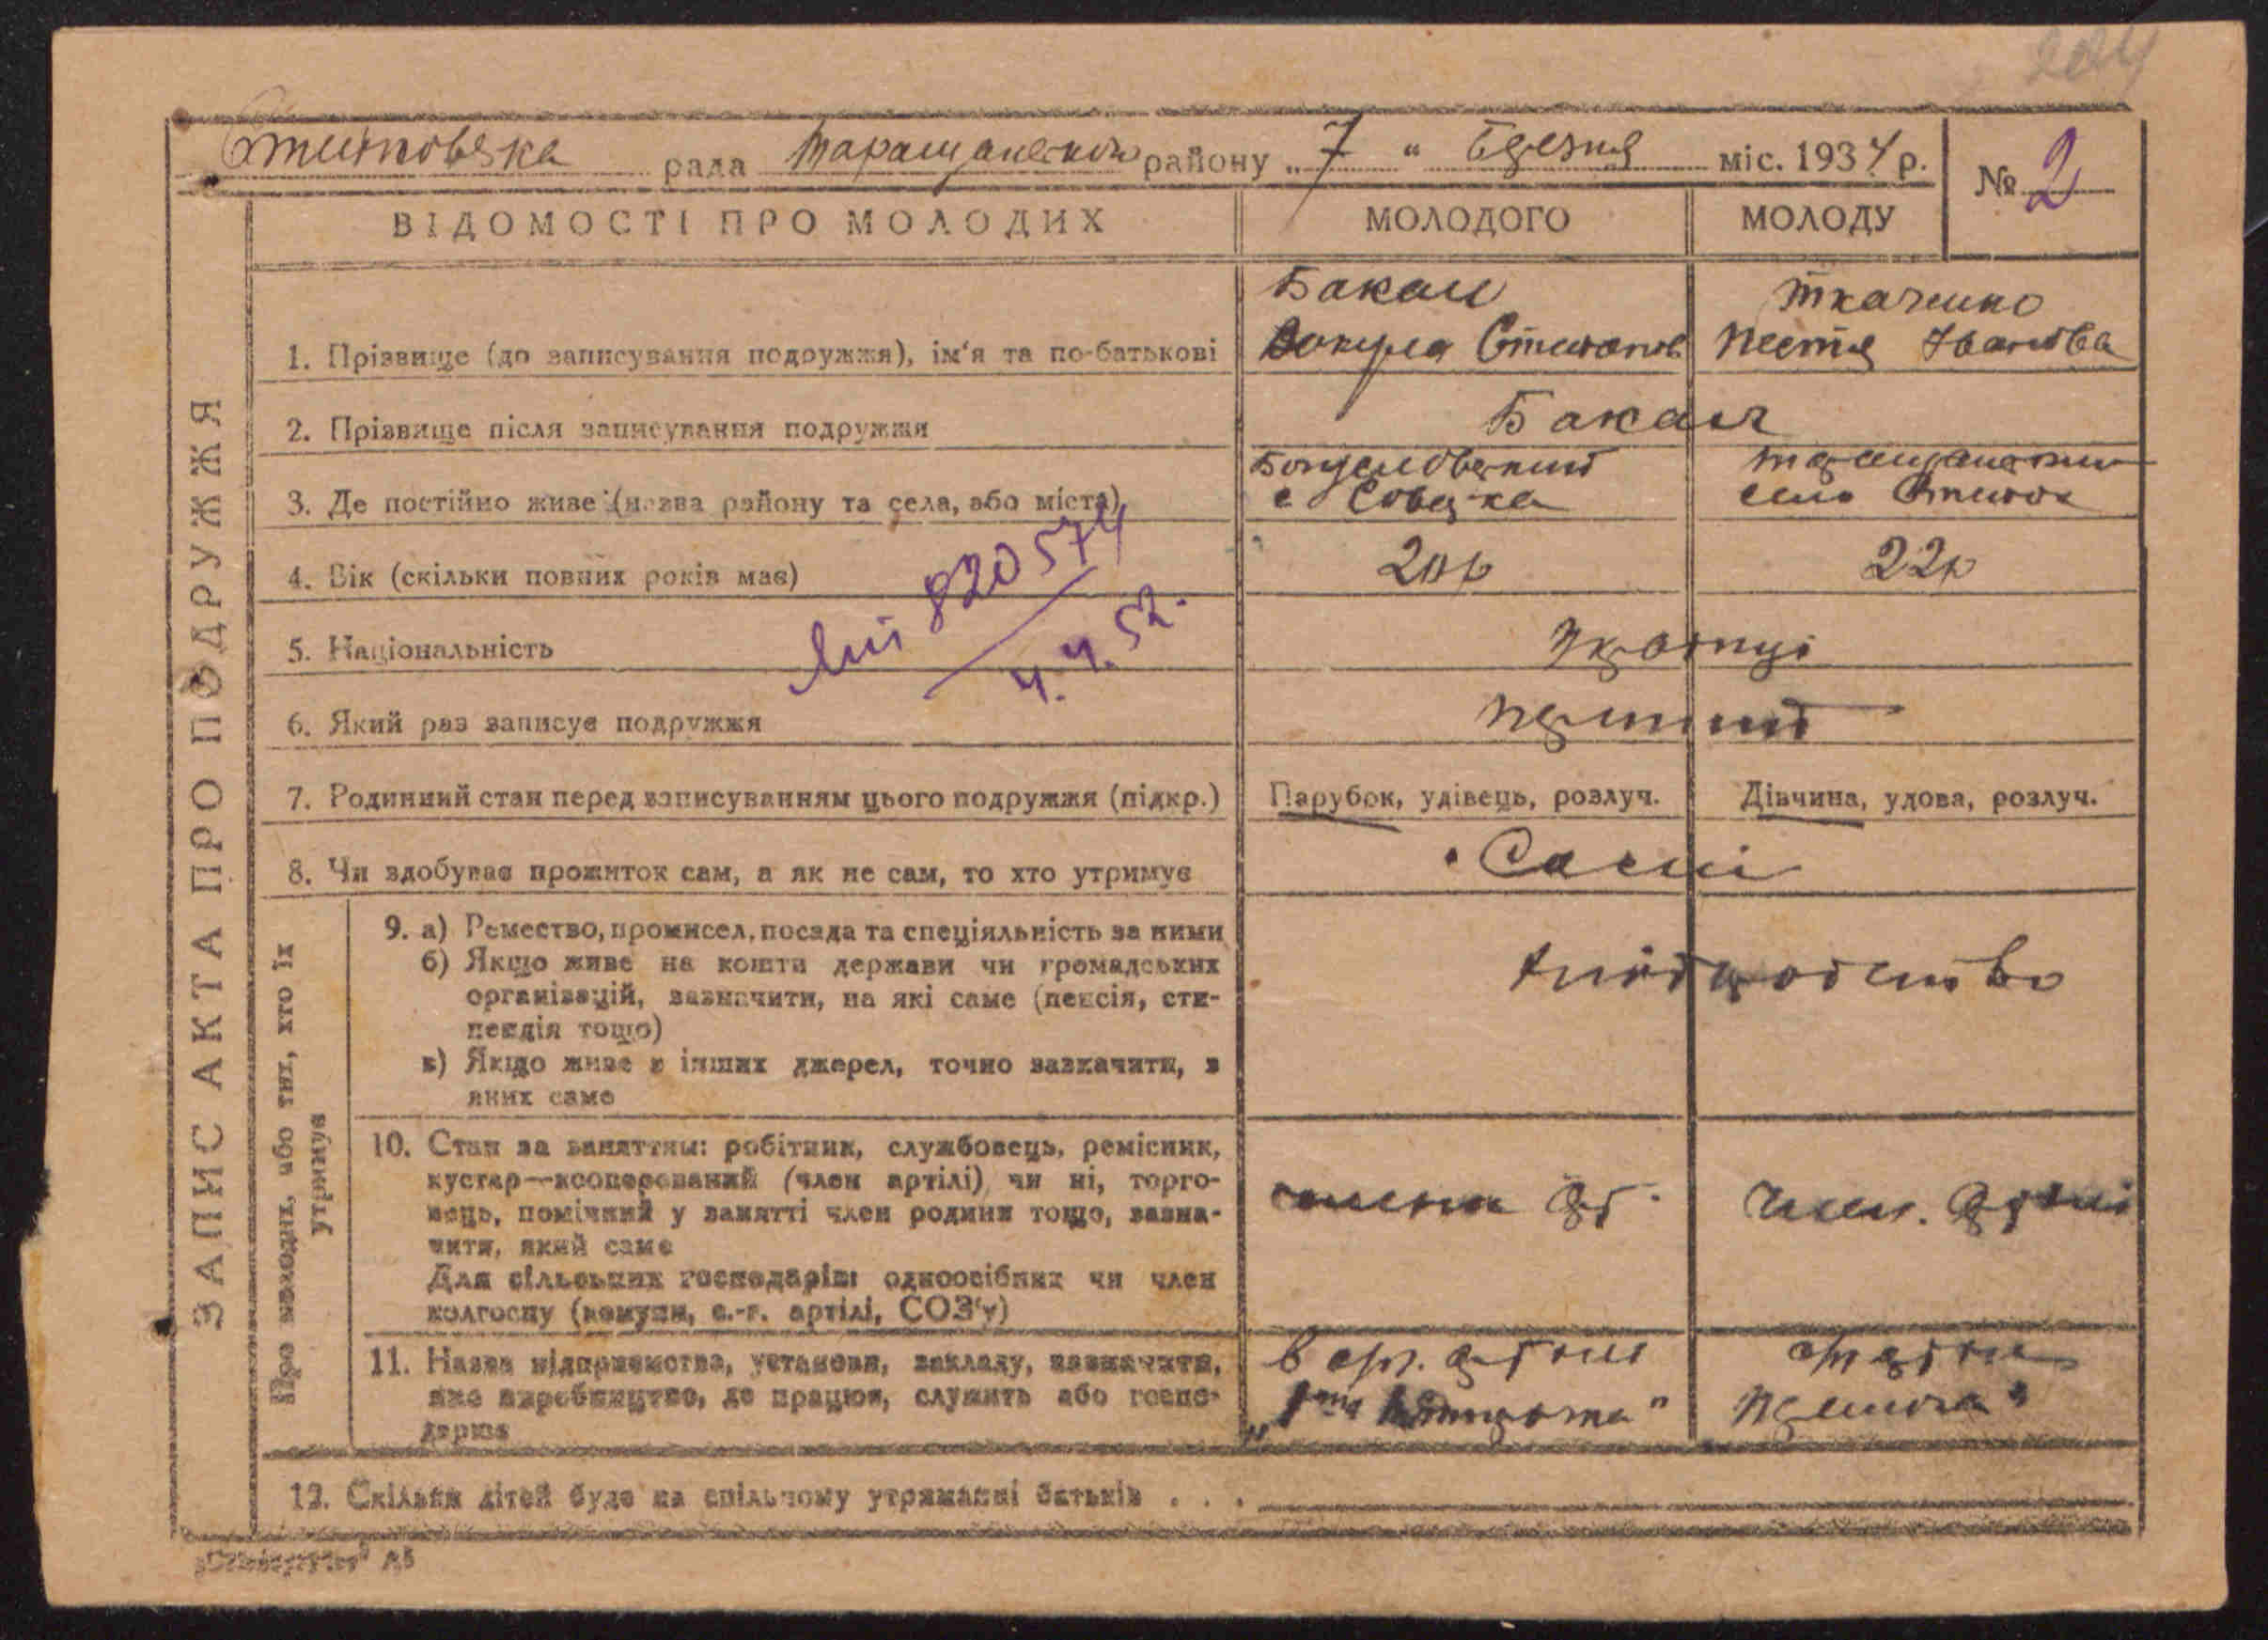 204
рада Таращанского району „ 7 “ Березня міс. 1934 р.
№ 2
ВІДОМОСТІ ПРО МОЛОДИХ
МОЛОДОГО
МОЛОДУ
ЗАПИС АКТА ПРО ПОДРУЖЖЯ
1. Прізвище (до записування подружжя), ім‘я та по-батькові
Бакал
Ткаченко
Настя Іванівна
2. Прізвище після записування подружжя
3. Де постійно живе (назва району та села, або міста)
село
4. Вік (скільки повних років має)
20р
22р
820574
4.4.52.
5. Національність
Українці
6. Який раз записує подружжя
перший
7. Родинний стан перед записуванням цього подружжя (підкр.)
Парубок, удівець, розлуч.
Дівчина, удова, розлуч.
8. Чи здобуває прожиток сам, а як не сам, то хто утримує
Самі
Про молодих, або тих, хто їх
утримує
9. а) Ремество, промисел, посада та спеціяльність за ними
б) Якщо живе на кошти держави чи громадських
організацій, зазначити, на які саме (пенсія, сти-
пендія тощо)
в) Якщо живе з інших джерел, точно зазначити, з
яких саме
хліборобство
10. Стан за заняттям: робітник, службовець, ремісник,
кустар—кооперований (член артілі) чи ні, торго-
вець, помічний у занятті член родини тощо, зазна-
чити, який саме
Для сільських господарів: одноосібник чи член
колгоспу (комуни, с.-г. артілі, СОЗ‘у)
член. артілі
11. Назва підприємства, установи, закладу, зазначити,
яке виробництво, де працює, служить або госпо-
дарює
12. Скільки дітей буде на спільному утриманні батьків . . .